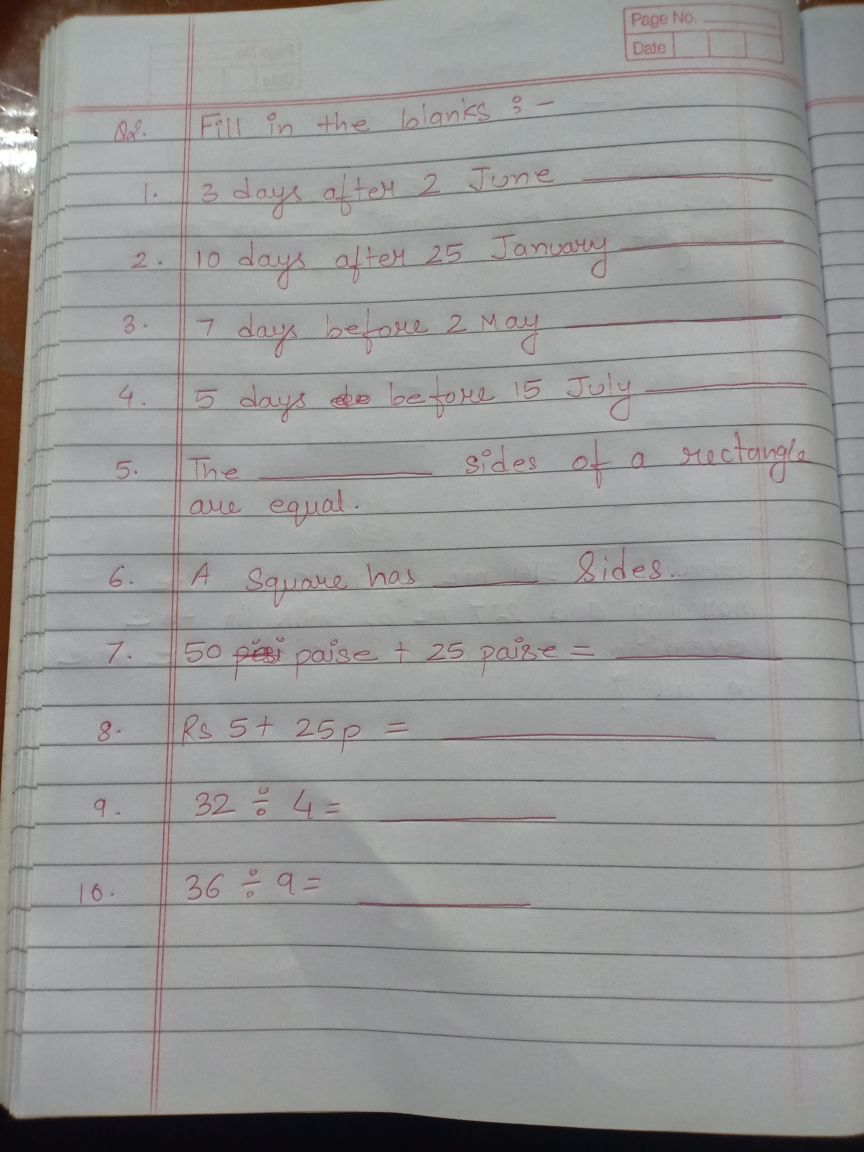 Page No. ________
Date
Q2. Fill in the blanks :-
1. 3 days after 2 June ________
2. 10 days after 25 January ________
3. 7 days before 2 May ________
4. 5 days before 15 July ________
5. The ________ sides of a rectangle
are equal.
6. A Square has ________ Sides.
7. 50 paise + 25 paise = ________
8. Rs 5 + 25p = ________
9. 32 ÷ 4 = ________
10. 36 ÷ 9 = ________